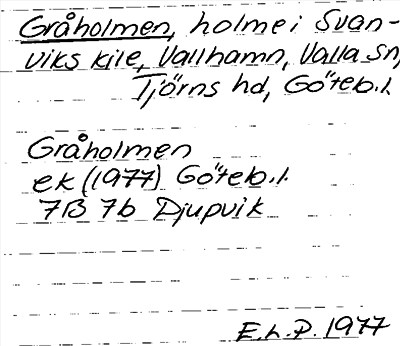 Gråholmen, holme i Svan-
viks kile, Vallhamn, Valla sn,
Tjörns hd, Göteb.l.
Gråholmen
ek (1977) Göteb.l.
7B 7b Djupvik
E.L.P. 1977